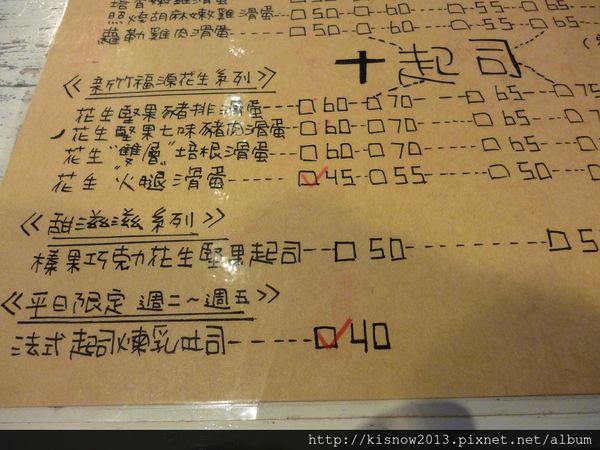 培香嫩雞滑蛋 50 60 55 65
照燒胡麻嫩雞滑蛋 50 60 55 65
蘿勒雞肉滑蛋 50 60 55 65
十起司
《新竹福源花生系列》
花生堅果豬排滑蛋---□60--□70----□65----□75
花生堅果七味豬肉滑蛋□60-□70----□65
花生"雙層"培根滑蛋---□60-□70----□65
花生"火腿滑蛋----□45-□55----□50
《甜滋滋系列》
榛果巧克力花生堅果起司--□50---------□5
《平日限定 週二~週五》
法式起司煉乳吐司------□40
http://kisnow2013.pixnet.net/album